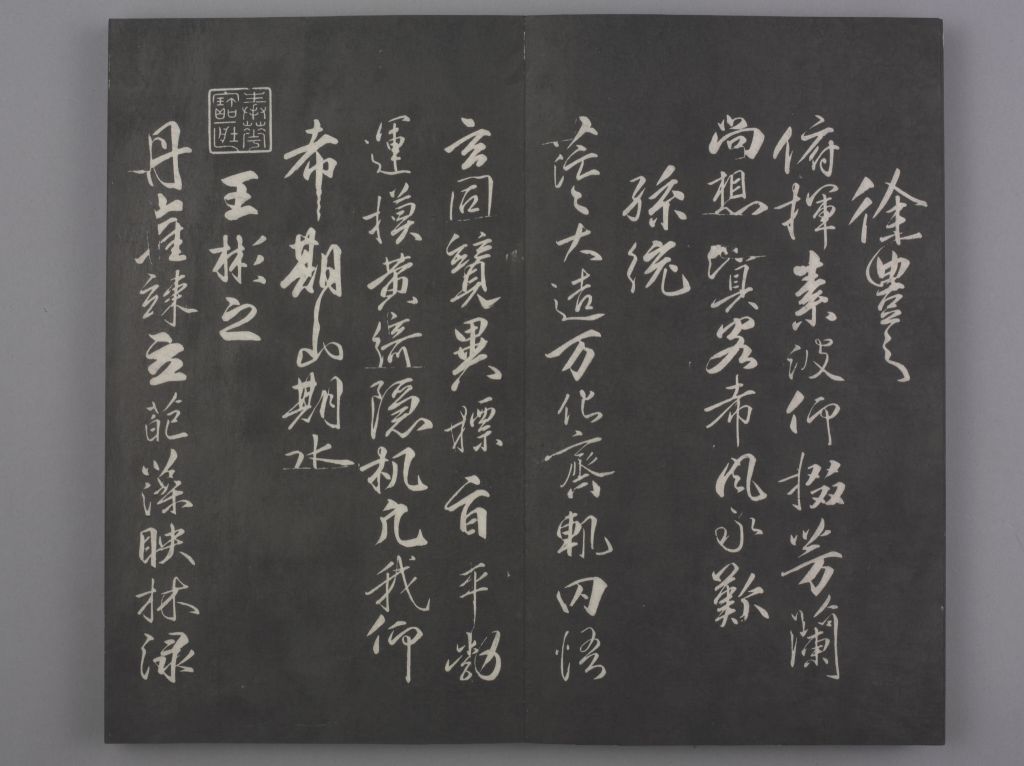 徐豐之
俯揮素波仰掇芳蘭
尚想客希風永歎
孫統
茫〻大造万化齊軌罔悟
玄同競異摽旨平勃
運模黃綺隐机凡我仰
希期山期水
王彬之
丹崖竦立葩藻映林淥